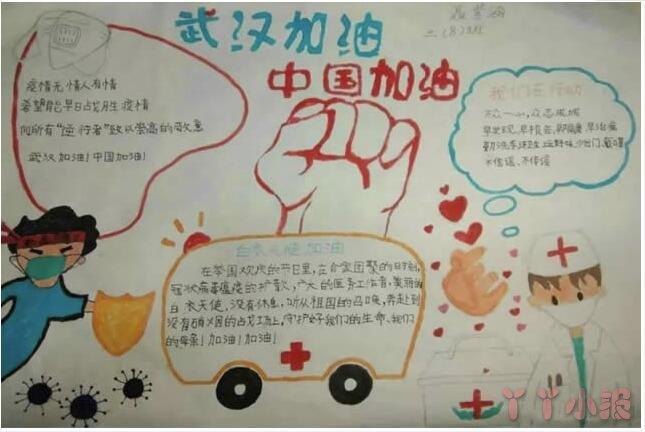 武汉加油
中国加油
二(8)班
疫情无情人有情
希望能早日战胜疫情
向所有"逆行者"致以崇高的敬意
武汉加油！中国加油！
我们在行动
万众一心，众志成城
早发现，早报告，早隔离，早治疗
勤洗手
不信谣、不传谣
白衣天使加油
在举国欢庆的节日里，在合家团聚的时刻，
冠状病毒
广大的医务工作者，美丽的
白衣天使，没有休息，听从祖国的召唤，奔赴到
没有硝烟的战场上，守护好我们的生命、我们
的母亲！加油！加油！
丫丫小报